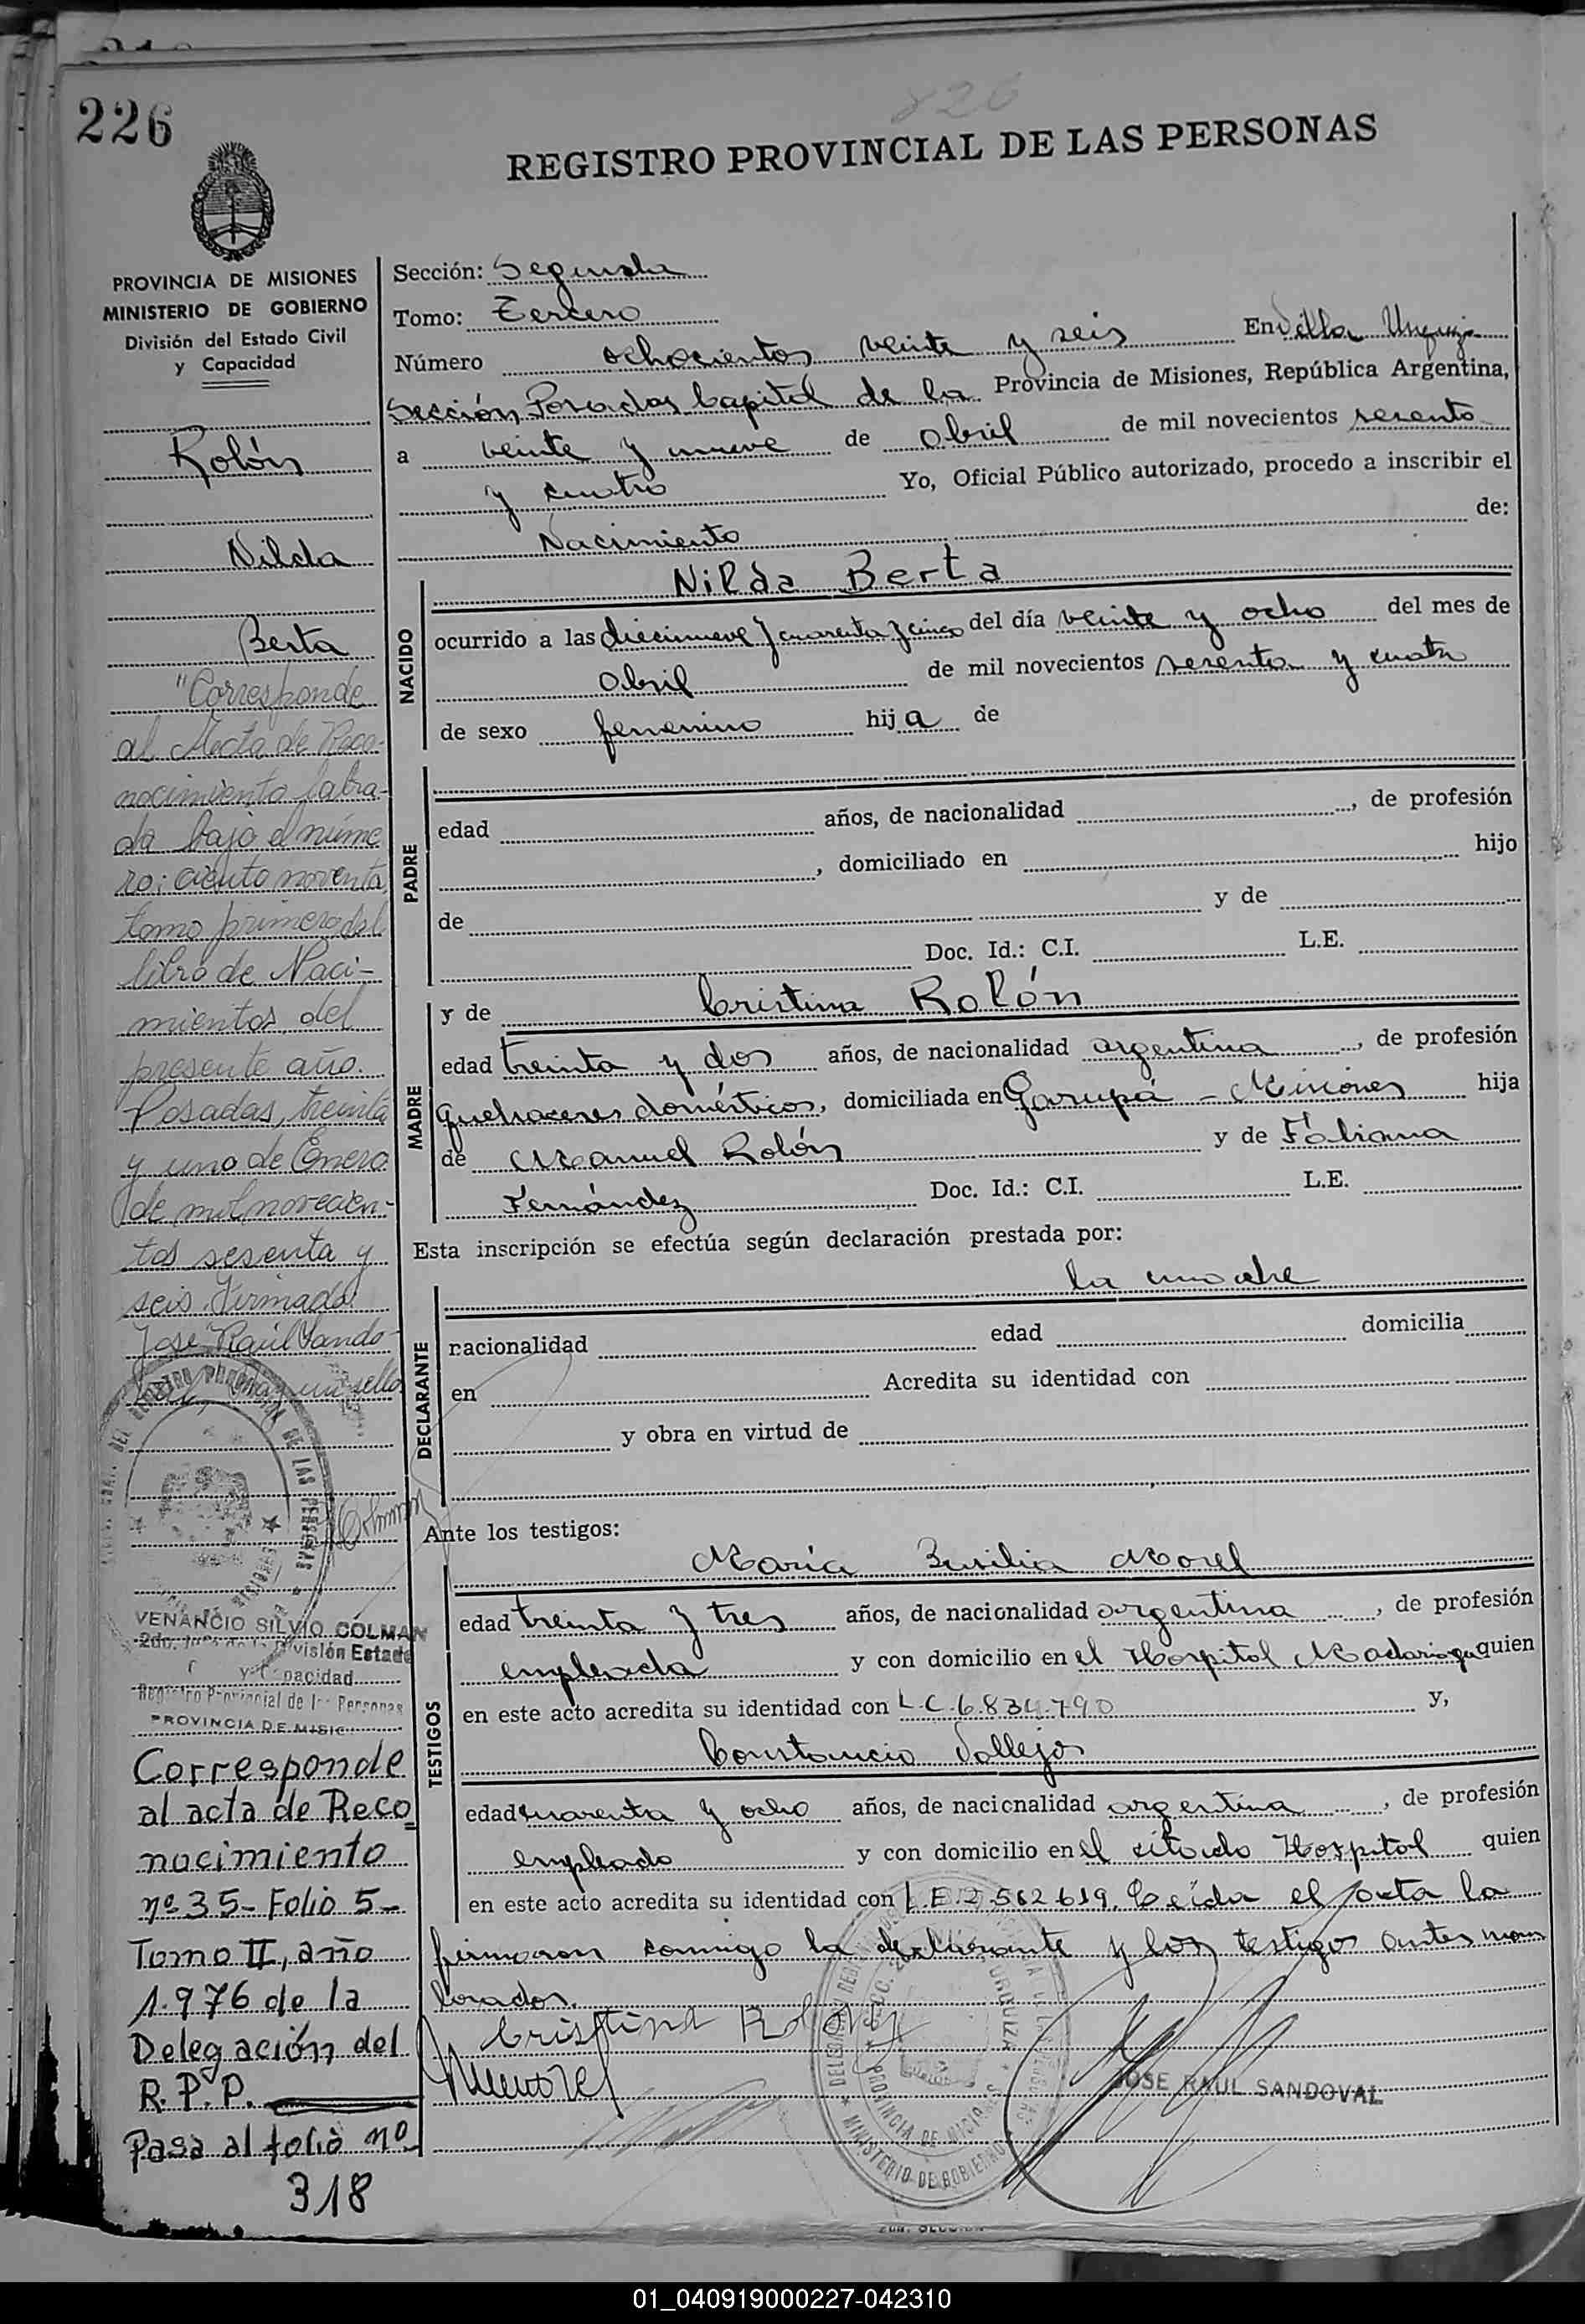 826
226
REGISTRO PROVINCIAL DE LAS PERSONAS
PROVINCIA DE MISIONES
MINISTERIO DE GOBIERNO
División del Estado Civil
y Capacidad
Rolón
Nilda
Berta
"Corresponde
al Acta de Reco-
nocimiento labra-
da bajo el núme
ro: ciento noventa,
tomo primero del
libro de Naci-
mientos del
presente año.
Posadas, treinta
y uno de Enero
de mil novecien-
tos sesenta y
seis. Firmado:
José Raúl Sando-
hay un sello
VENANCIO SILVIO COLMAN
División Estado
y Capacidad
Registro Provincial de las Personas
PROVINCIA DE MISIO
Corresponde
al acta de Reco
nocimiento
nº 35- Folio 5-
Tomo II, año
1.976 de la
Delegación del
R.P.P.
Pasa al folio nº
318
Sección: Segunda
Tomo: Tercero
Número ochocientos veinte y seis En Villa Urquiza
Sección Posadas Capital de la Provincia de Misiones, República Argentina,
a veinte y nueve de abril de mil novecientos sesenta
y cuatro Yo, Oficial Público autorizado, procedo a inscribir el
Nacimiento de:
NACIDO
Nilda Berta
ocurrido a las diecinueve y cuarenta y cinco del día veinte y ocho del mes de
abril de mil novecientos sesenta y cuatro
de sexo femenino hija de
PADRE
edad años, de nacionalidad , de profesión
, domiciliado en hijo
de y de
Doc. Id.: C.I. L.E.
MADRE
y de Cristina Rolón
edad treinta y dos años, de nacionalidad argentina , de profesión
quehaceres domésticos, domiciliada en Garupá - Misiones hija
de Manuel Rolón y de Fabiana
Fernández Doc. Id.: C.I. L.E.
Esta inscripción se efectúa según declaración prestada por:
la madre
DECLARANTE
nacionalidad edad domicilia
en Acredita su identidad con
y obra en virtud de
Ante los testigos:
TESTIGOS
María Basilia Morel
edad treinta y tres años, de nacionalidad argentina , de profesión
empleada y con domicilio en el Hospital Madariaga quien
en este acto acredita su identidad con L.C.6.834.790 y,
Constancio Vallejos
edad cuarenta y ocho años, de nacionalidad argentina , de profesión
empleado y con domicilio en el citado Hospital quien
en este acto acredita su identidad con L.E.2.562.619. Leída el acta la
firmaron conmigo la declarante y los testigos antes nom
brados.
Cristina Rolón
JOSE RAUL SANDOVAL
PROVINCIA DE MISIONES
MINISTERIO DE GOBIERNO
01_040919000227-042310